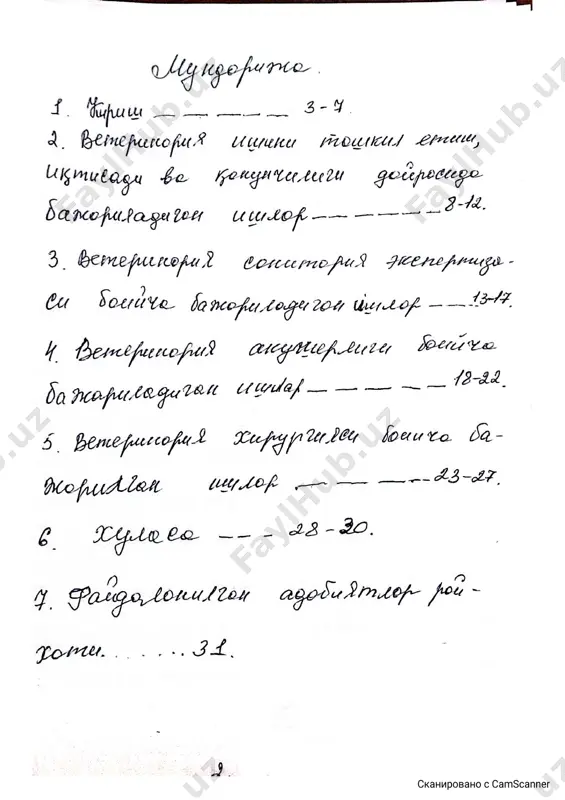 Мундорижа.
1. Кириш — — — — — 3-7.
2. Ветеринория ишини тошкил етиш,
иқтисади ва қонунчилиги дойросида
бажориладигон ишлор — — — — — 8-12.
3. Ветеринория сонитория экспертиза-
си бойича бажориладигон ишлор — — 13-17.
4. Ветеринория акушерлиги бойича
бажариладигон ишлар — — — — — 18-22.
5. Ветеринория хирургияси бойича ба-
жорилгон ишлор — — — — 23-27.
6. Хуласа — — - 28-30.
7. Файдолонилгон адобиятлор рой-
хоти. . . . . . . . 31.
2
Сканировано с CamScanner
FaylHub.uz
FaylHub.uz
FaylHub.uz
FaylHub.uz